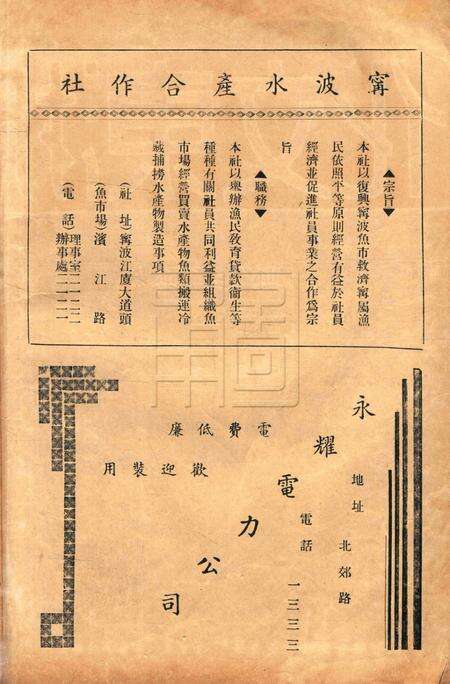 甯波水產合作社
▲宗旨▼
本社以復興甯波魚市救濟甯屬漁
民依照平等原則經營有益於社員
經濟並促進社員事業之合作爲宗
旨
▲職務▼
本社以興辦漁民敎育貸款衞生等
種種有關社員共同利益並組織魚
市場經營買賣水產物魚類搬運冷
藏捕撈水產物製造事項
(社址)甯波江廈大道頭
(魚市場)濱江路
(電話)理事室二一一三二
辦事處二一二二二
永耀電力公司
地址 北郊路
電話 一三三三
電費低廉
歡迎裝用